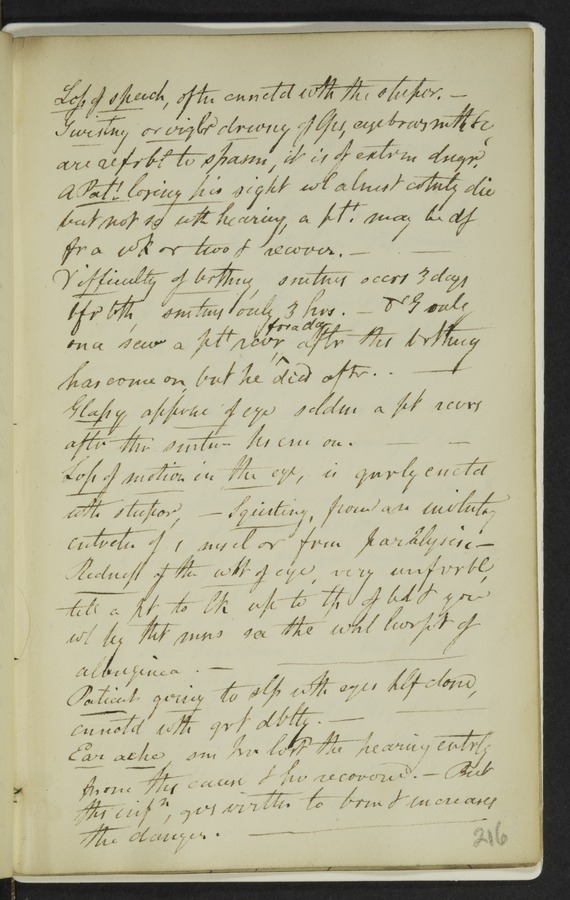 Loss of speech, oftn cnnctd with the stupor. —
Twistng or viglr drwng of lps, eyebrows, mth &c
are refrbl to spasm, it is of extrm dngr,
A Pat! losing his sight wl almst crtnly die
but not so wth hearing, a pt! may be df
fr a wk or two & recover. — —
Difficulty of brthng, smtms occrs 3 days
bfr dth, smtms only 3 hrs. — Dr G only
once saw a ptt recvr aftr this brthng
has come on, but he for a day died aftr. . —
Glassy apprnc of eye seldm a pt recvrs
after this smtm hs cme on. — —
Loss of motion in the eye, is gnrly cnctd
wth stupor, — Squinting, from an invlntry
cntrctn of 1 muscl or from paralysis —
Redness of the wht of eye, very unfvrbl,
tell a pt to lk up to tp of bd & you
wl by tht mns see the whl of
albuginea. —
Patient going to slp wth eyes hlf closed,
cnnctd wth grt dblty. —
Ear ache, sm hv lost the hearing entrly
from this cause & hv recovered. — But
ths infn, goes to brn & increases
the danger. —
216